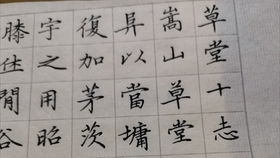 草堂十志
嵩山草堂
阜以當墉
復加茅茨
宇之用昭
膝休閒谷